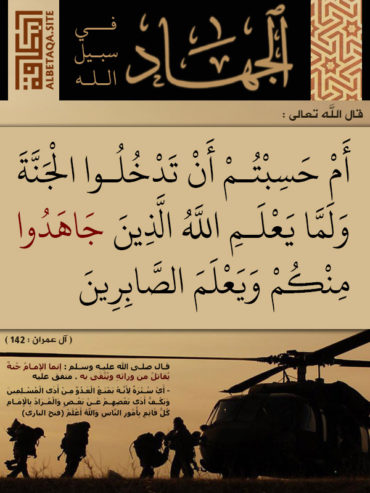 البطاقة
ALBETAQA.SITE
الجهاد
في
سبيل
الله
قال الله تعالى :
أَمْ حَسِبْتُمْ أَنْ تَدْخُلُوا الْجَنَّةَ
وَلَمَّا يَعْلَمِ اللَّهُ الَّذِينَ جَاهَدُوا
مِنْكُمْ وَيَعْلَمَ الصَّابِرِينَ
( آل عمران : 142 )
قال صلى الله عليه وسلم : إنما الإمام جنة
يقاتل من ورائه ويتقى به . متفق عليه
- أي سترة لأنه يمنع العدو من أذى المسلمين
ويكف أذى بعضهم عن بعض والمراد بالإمام
كل قائم بأمور الناس والله أعلم (فتح الباري)